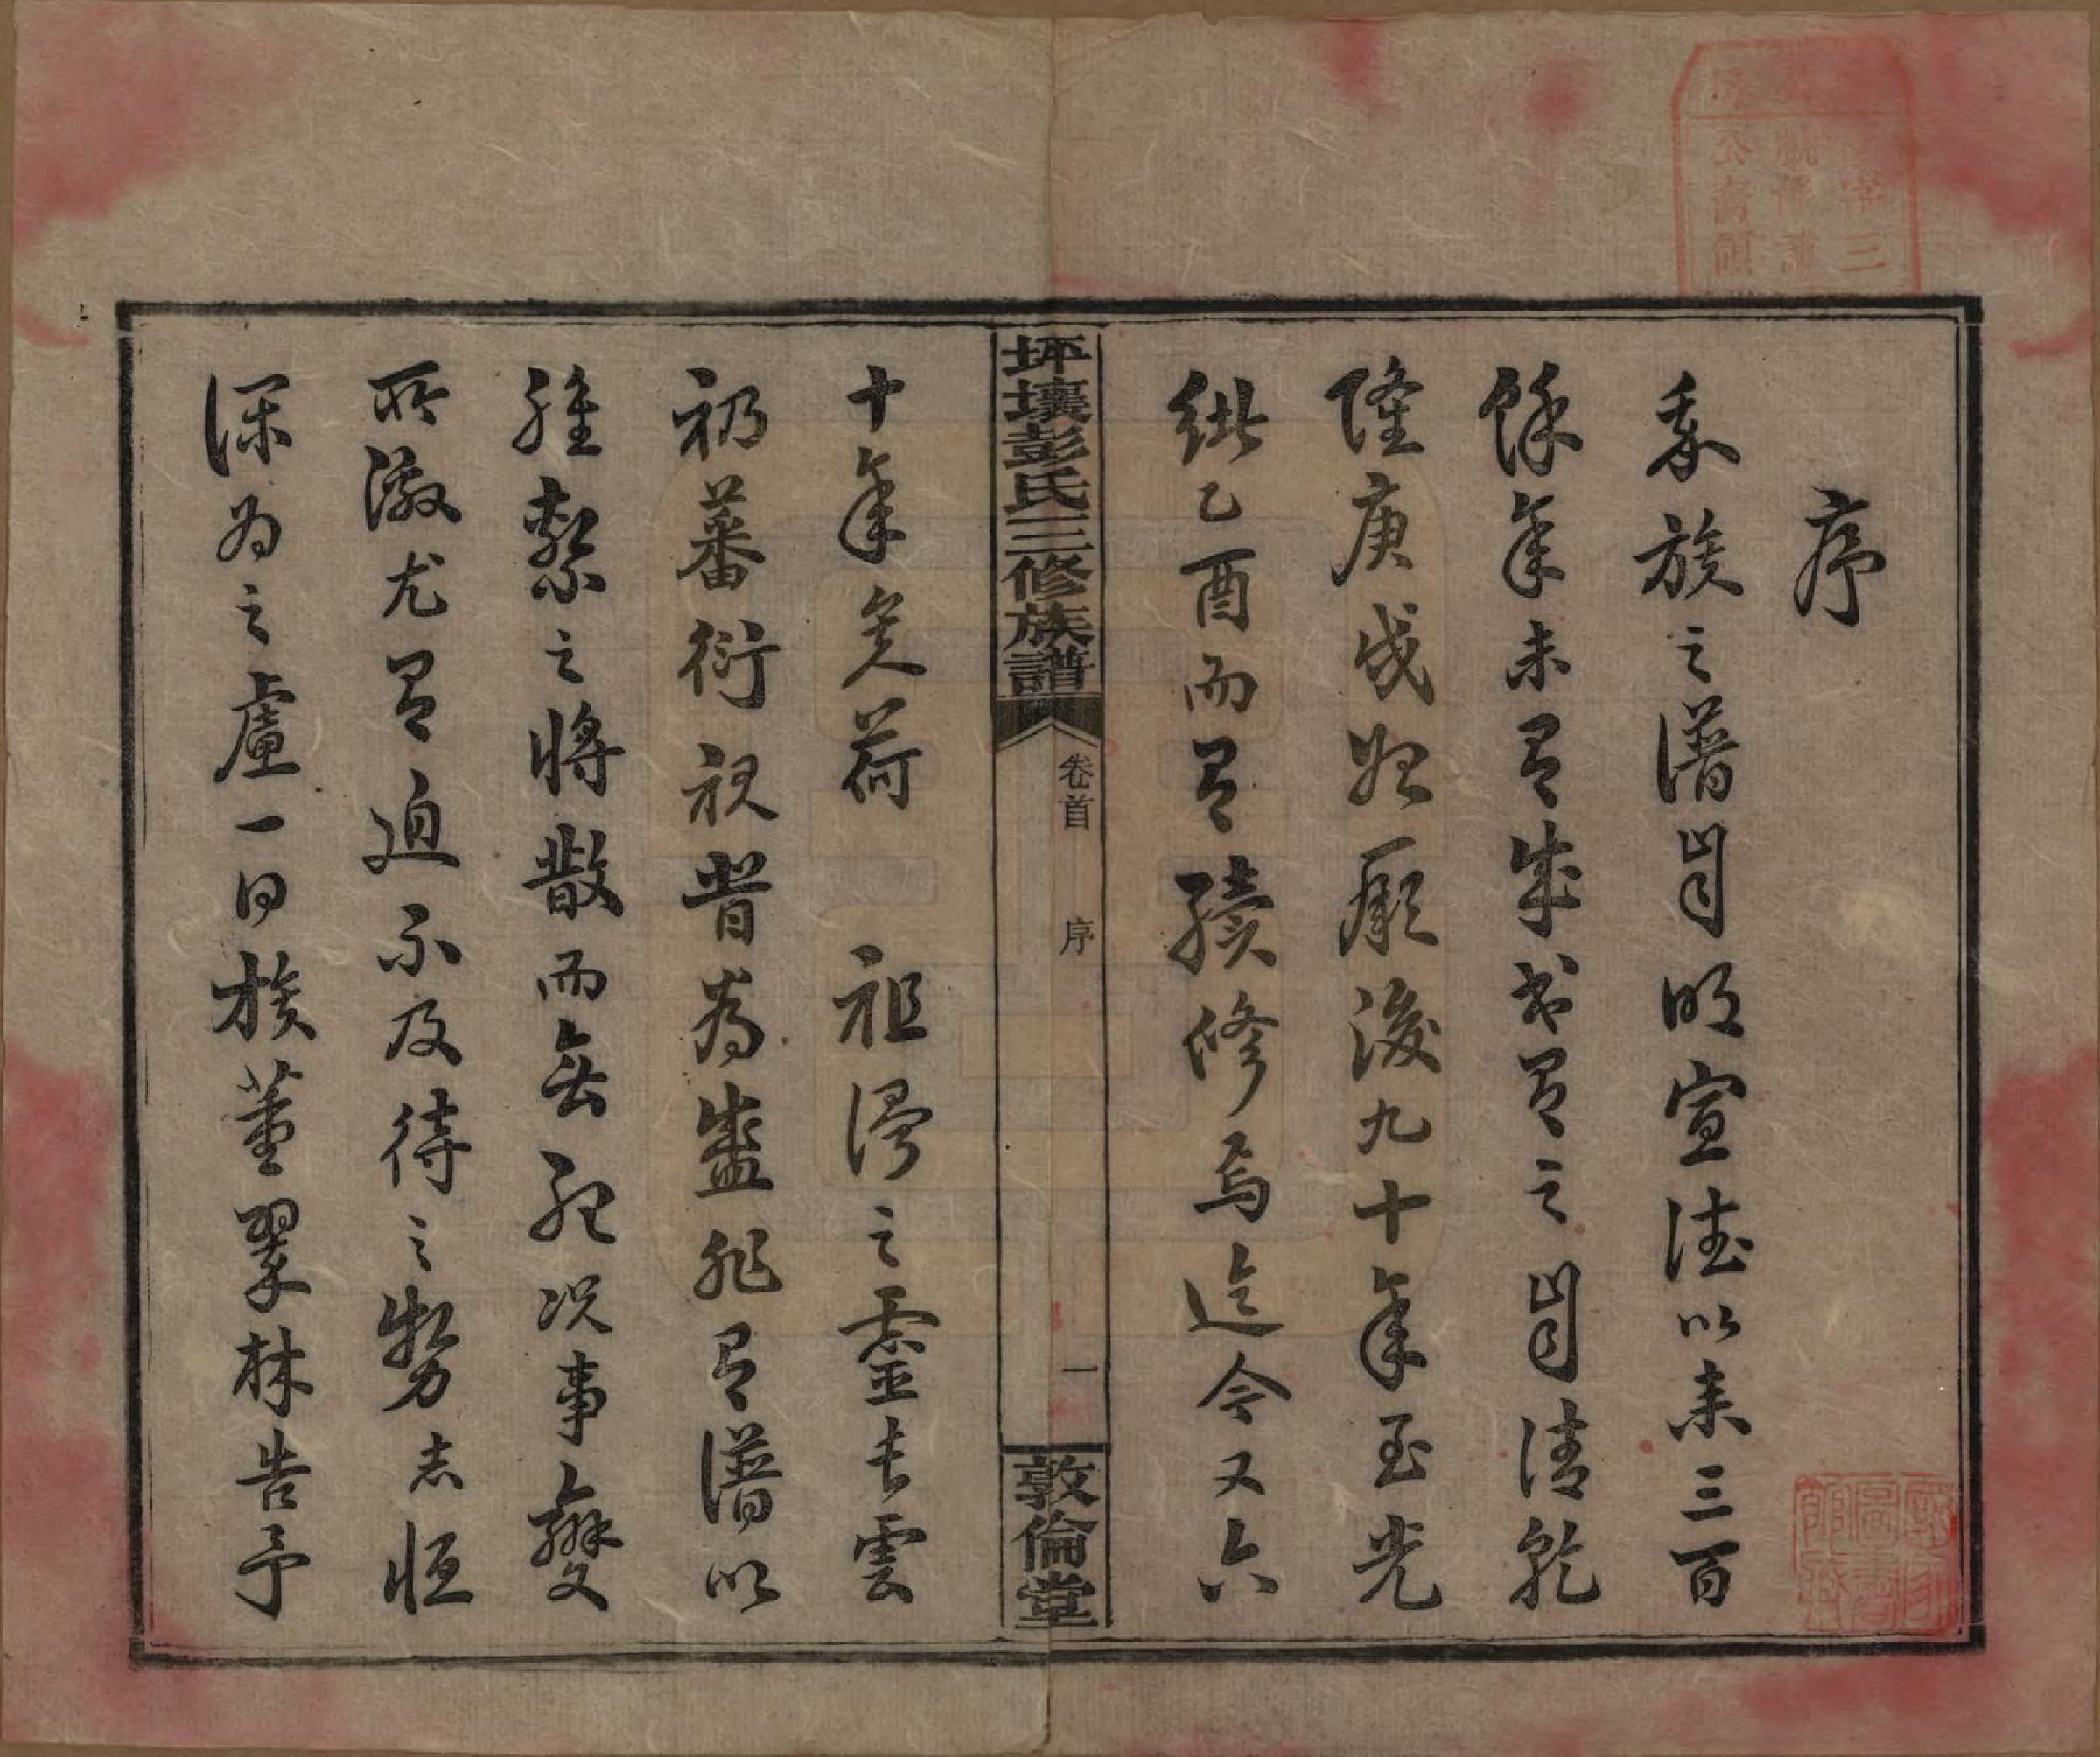 序
我族之譜自明宣德以来三百
餘年未有成書有之自清乾
隆庚戌始厥後九十年至光
緒乙酉而有續修焉迄今又六
坪壤彭氏三修族譜
卷首 序 一
敦倫堂
十年矣荷 祖澤之靈長雲
礽蕃衍視昔為盛非有譜以
維繫之將散而無紀况事變
所激尤有迫不及待之勢志恒
深为之慮一日族董翠林告予